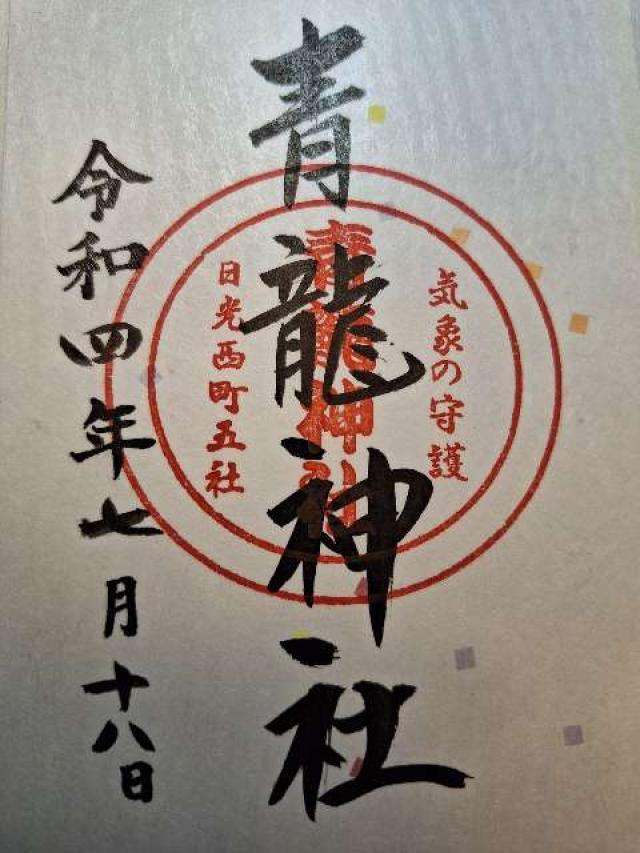 青龍神社
気象の守護
青龍神社
日光西町五社
令和四年七月十八日